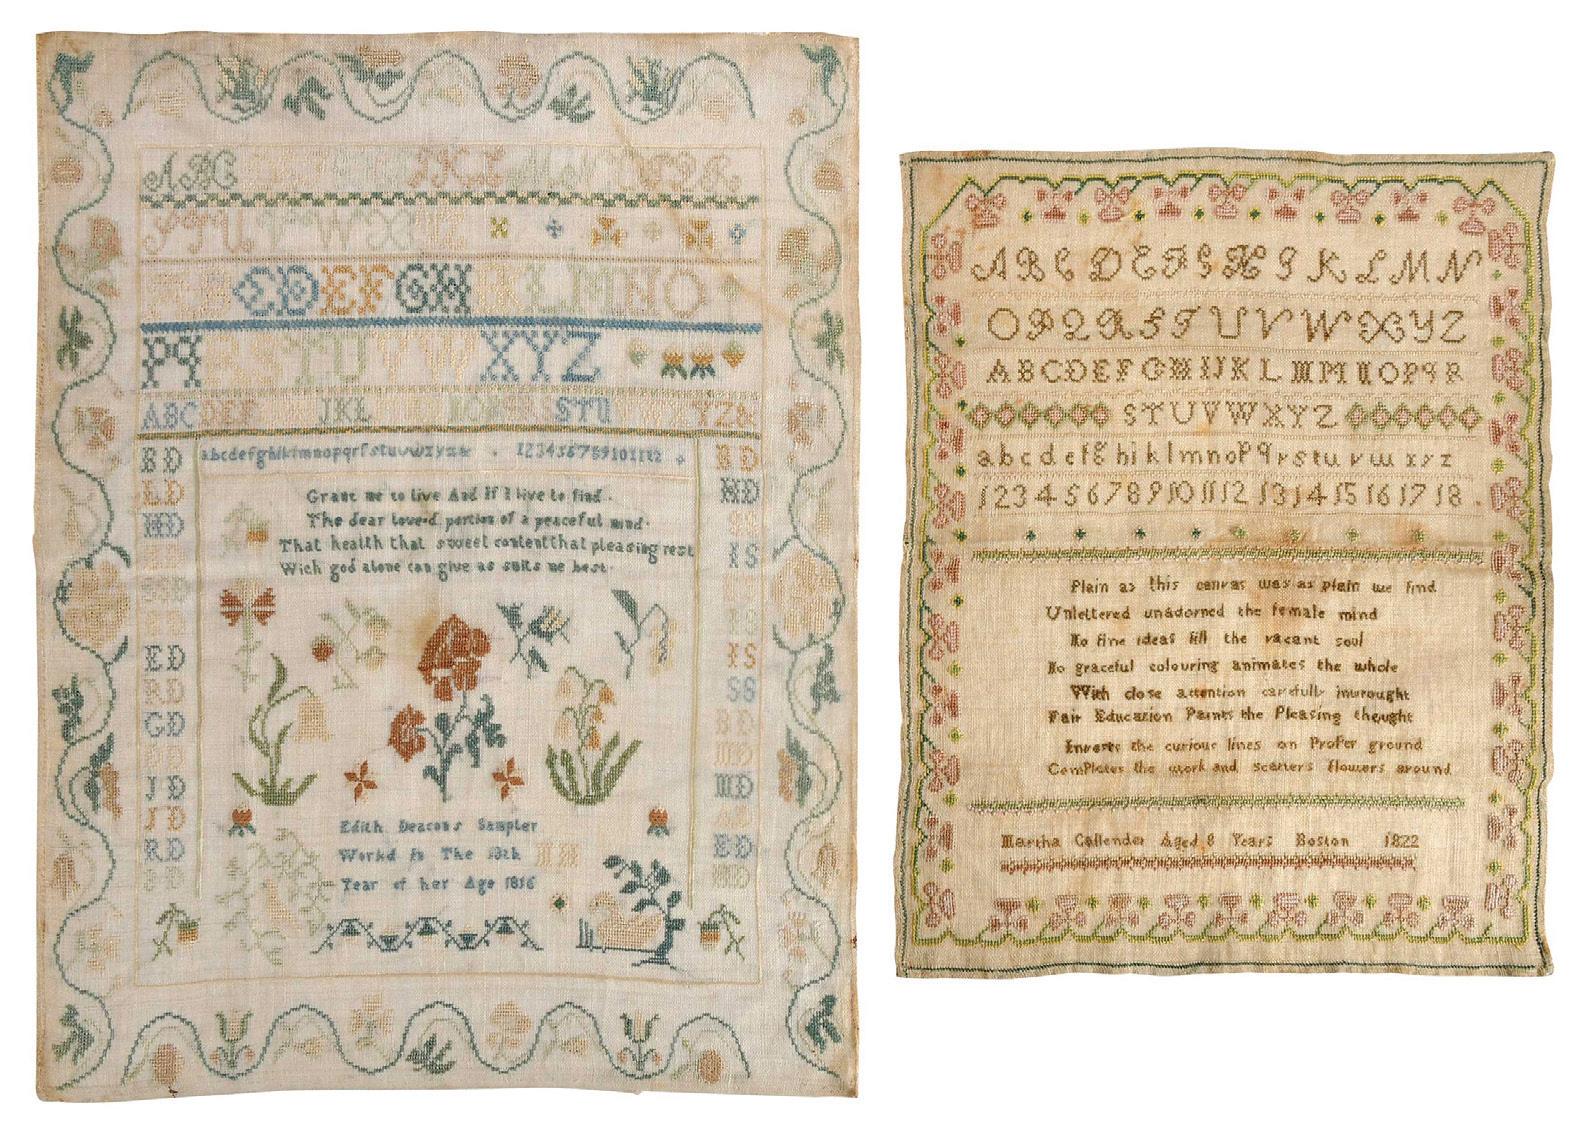 A B C I K L
T U V W X
C D E F G H L M N O
P Q T U V W X Y Z
A B C D E F J K L S T U Y Z &
abcdefghiklmnopqrſstuvwxyz& 1 2 3 4 5 6 7 8 9 10 11 12
Grant me to live And If I live to find
The dear love-d portion of a peaceful mind
That health that sweet content that pleasing rest
Wich god alone can give as suits me best
B D
L D
H D
E D
R D
G D
J D
J D
R D
B D
H D
I S
I S
S S
B D
M D
M D
E D
Edith Deacons Sampler
Workd In The 10th
Year of her Age 1816
A B C D E F G H I K L M N
O P Q R S T U V W X Y Z
A B C D E F G H I J K L M N O P Q R
S T U V W X Y Z
a b c d e f g h i k l m n o p q r s t u v w x y z
1 2 3 4 5 6 7 8 9 10 11 12 13 14 15 16 17 18 .
Plain as this canvas was as plain we find
Unlettered unadorned the female mind
No fine ideas fill the vacant soul
No graceful colouring animates the whole
With close attention carefully inwrought
Fair Education Paints the Pleasing thought
Inserts the curious lines on ProPer ground
ComPletes the work and scatters flowers around
Martha Callender Aged 8 Years Boston 1822